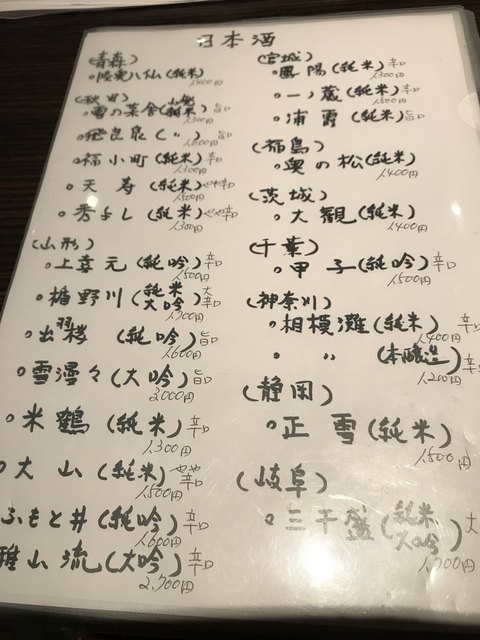 日本酒
(青森)
陸奥八仙(純米)
1,400円
(秋田)
雪の茅舎(山廃純米)旨口
1,300円
飛良泉(〃)旨口
1,600円
福小町(純米)辛口
1,300円
天寿(純米)やや辛口
1,500円
秀よし(純米)やや辛口
1,300円
(山形)
上喜元(純吟)辛口
1,500円
楯野川(純米大吟)大辛口
1,700円
出羽桜(純吟)旨口
1,600円
雪漫々(大吟)旨口
3,000円
米鶴(純米)辛口
1,300円
大山(純米)やや辛口
1,500円
ふもと井(純吟)辛口
1,600円
雅山流(大吟)辛口
2,700円
(宮城)
鳳陽(純米)辛口
1,300円
一ノ蔵(純米)辛口
1,500円
浦霞(純米)旨口
1,300円
(福島)
奥の松(純米)
1,400円
(茨城)
大観(純米)
1,400円
(千葉)
甲子(純吟)辛口
1,500円
(神奈川)
相模灘(純米)辛
1,400円
〃(本醸造)辛
1,200円
(静岡)
正雪(純米)
1,500円
(岐阜)
三千盛(純米大吟)大
1,700円